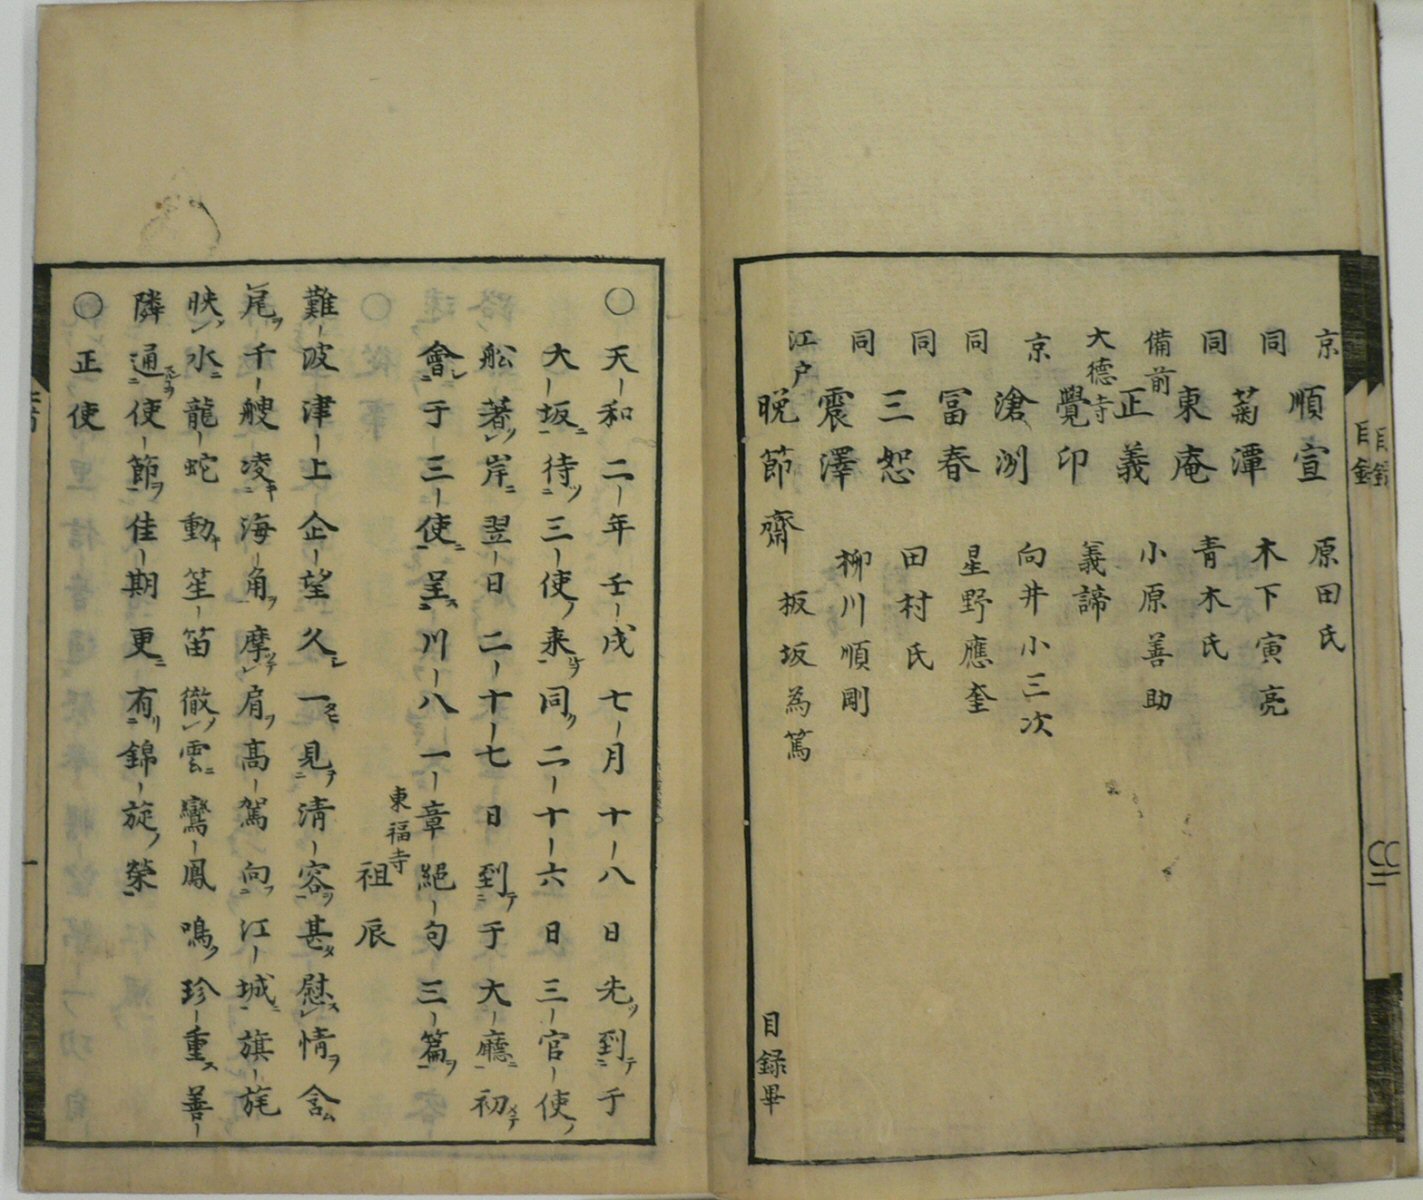 京 順宣 原田氏
同 菊潭 木下寅亮
同 東庵 青木氏
備前 正義 小原善助
大德寺 覺印 義諦
京 滄洲 向井小三次
同 冨春 星野應奎
同 三恕 田村氏
同 震澤 柳川順剛
江户 晩節齋 板坂為篤
目録畢
目録
〇天和二年壬戌七月十八日先到于
大坂待三使来同二十六日三官使
舩著岸翌日二十七日到于大廳初
會于三使呈川八一章絕句三篇
東福寺 祖辰
難波津上企望久一見清容甚慰情含
尾千艘凌海角摩肩高駕向江城旗旄
映水龍蛇動笙笛徹雲鸞鳳鳴珍重善
隣通使節佳期更有錦旋榮
〇正使